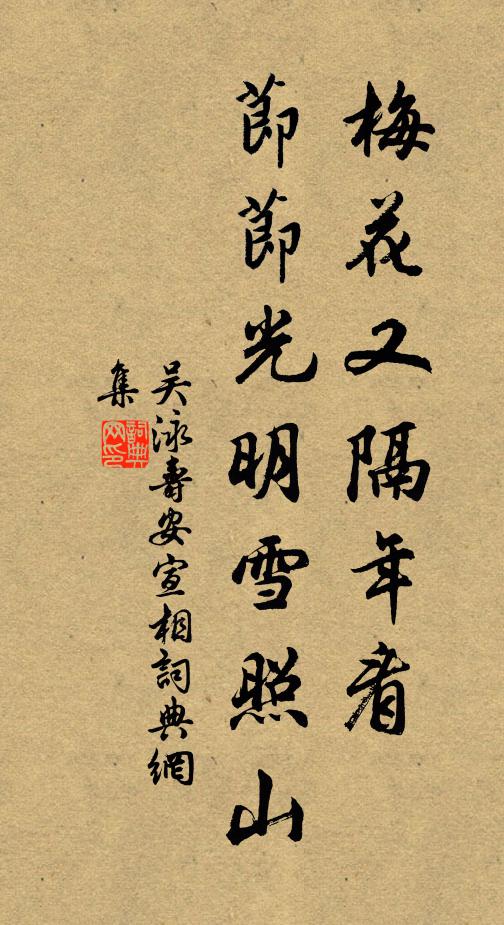 梅花又隔年看
節節光明雪照山
吴泳壽安宣相詞典網
集
詞典
网印